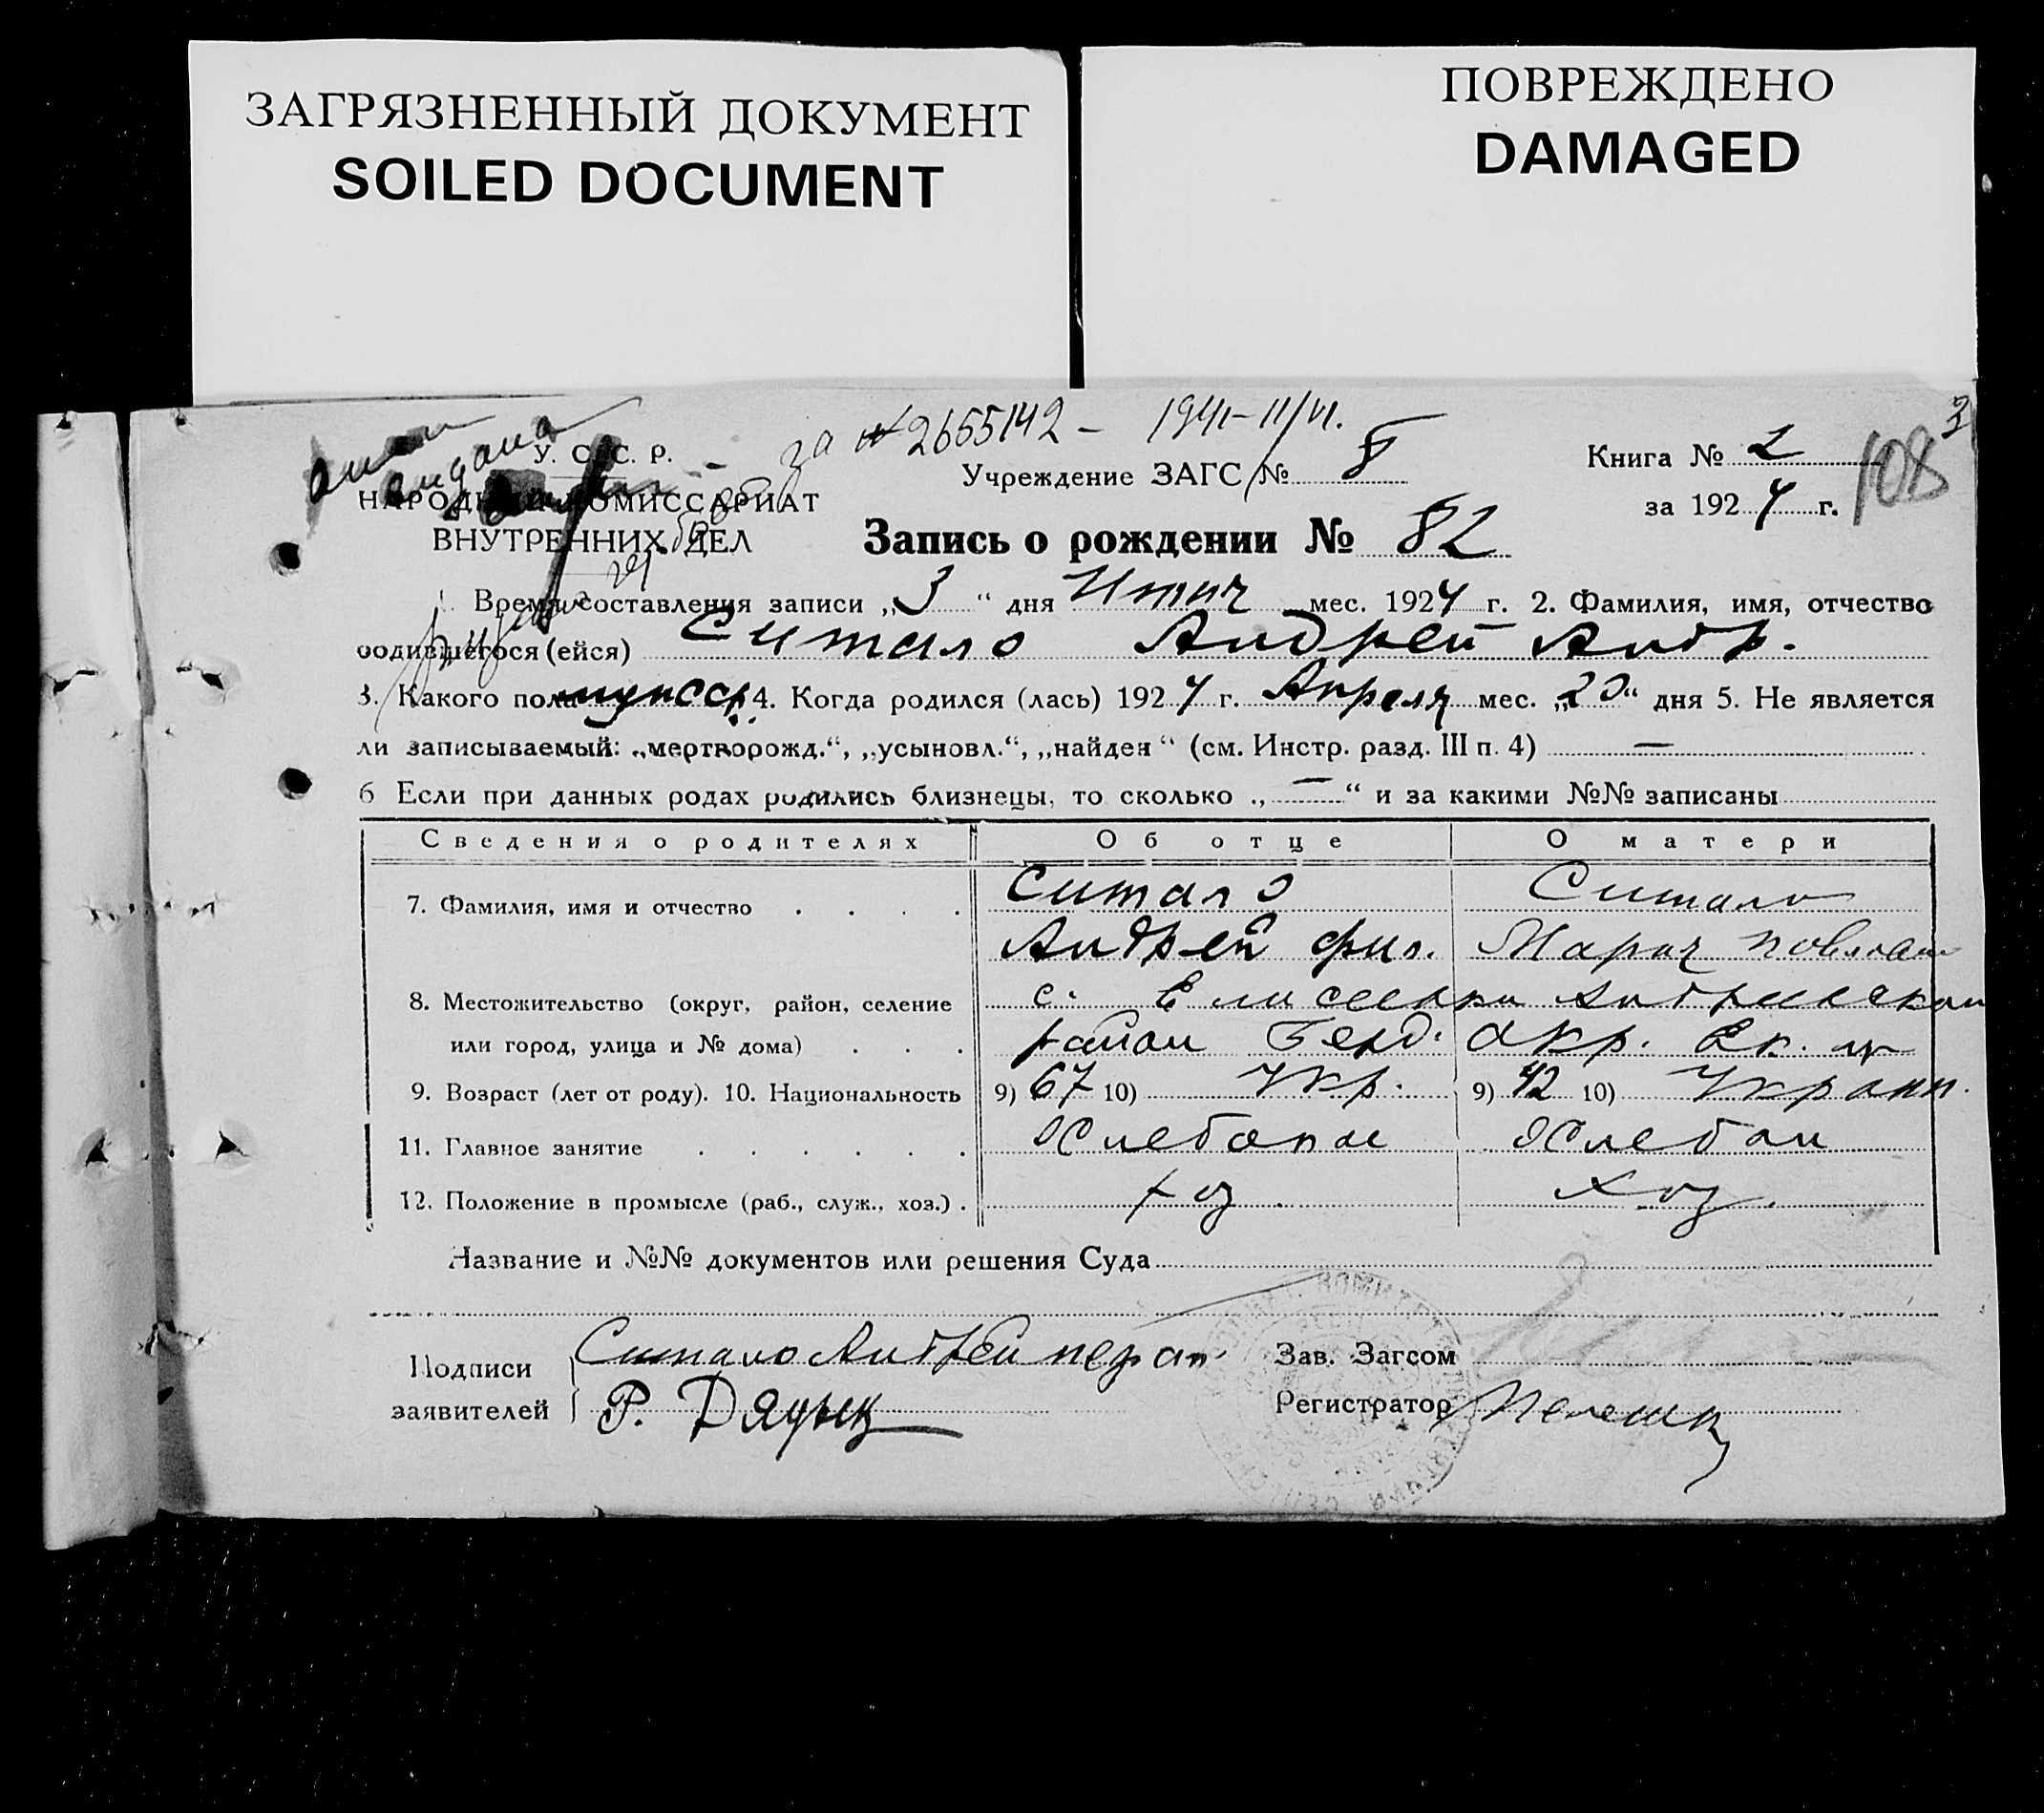 ЗАГРЯЗНЕННЫЙ ДОКУМЕНТ
SOILED DOCUMENT
ПОВРЕЖДЕНО
DAMAGED
за № 2655142 – 1941-11/VI.
3
108
У. С. С. Р.
НАРОДНЫЙ КОМИССАРИАТ
ВНУТРЕННИХ ДЕЛ
Учреждение ЗАГС № 8
Книга № 2
за 1924 г.
Запись о рождении № 82
1. Время составления записи „3“ дня мес. 1924 г. 2. Фамилия, имя, отчество
родившегося (ейся) Ситало Андрей Андр.
3. Какого пола 4. Когда родился (лась) 1924 г. Апреля мес. „20“ дня 5. Не является
ли записываемый: „мертворожд.“, „усыновл.“, „найден“ (см. Инстр. разд. III п. 4) —
6 Если при данных родах родились близнецы, то сколько „—“ и за какими №№ записаны
Сведения о родителях Об отце О матери
7. Фамилия, имя и отчество Ситало Ситало
Андрей Фил. Мария
8. Местожительство (округ, район, селение с.
или город, улица и № дома) район Берд. окр. Ек.
9. Возраст (лет от роду). 10. Национальность 9) 67 10) Укр. 9) 42 10) Украин.
11. Главное занятие
12. Положение в промысле (раб., служ., хоз.) хоз. хоз.
Название и №№ документов или решения Суда
Подписи Ситало Андрей
заявителей Р.
Зав. Загсом
Регистратор